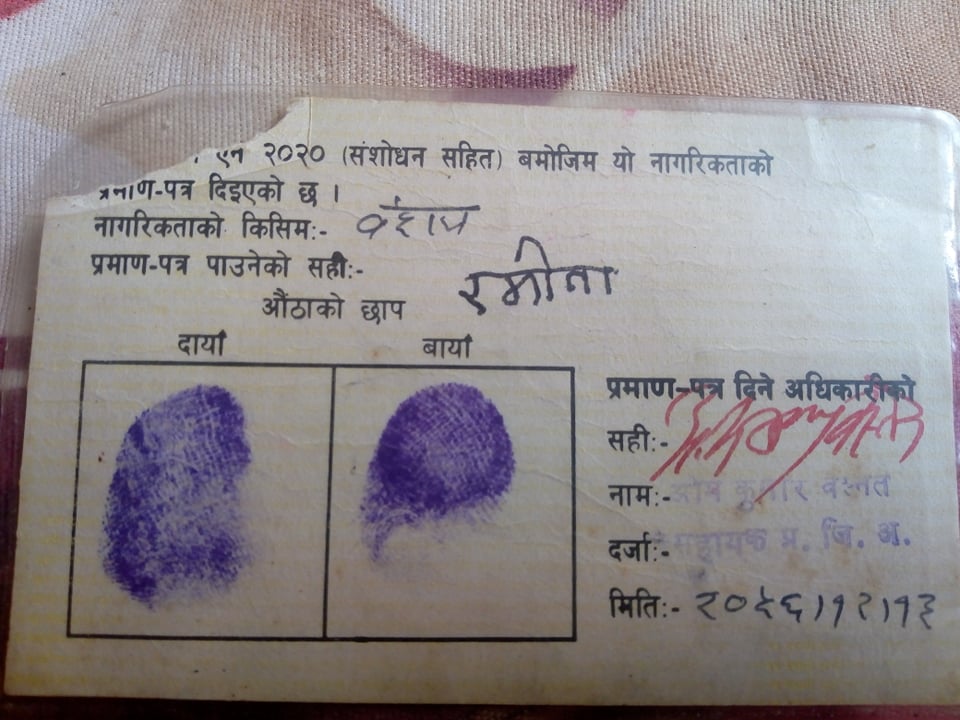 एन २०२० (संशोधन सहित) बमोजिम यो नागरिकताको
प्रमाण-पत्र दिइएको छ ।
नागरिकताको किसिम:- वंशज
प्रमाण-पत्र पाउनेको सही:- रमीता
औंठाको छाप
दायाँ बायाँ
प्रमाण-पत्र दिने अधिकारीको
सही:-
नाम:- कुमार
दर्जा:- सहायक प्र. जि. अ.
मिति:- २०५६।१२।१३